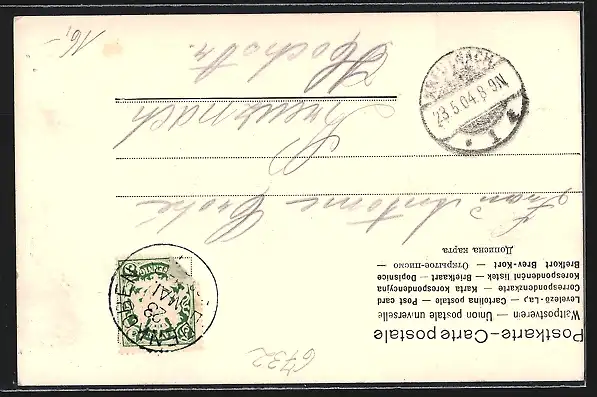 Postkarte—Carte postale
Weltpostverein — Union postale universelle
Levelező-Lap — Cartolina postale — Post card
Correspondenzkarte — Karta korespondencyjna
Korespondenční lístek — Briefkaart — Dopisnice
Brefkort Brev-Kort — Открытое-письмо —
Дописна карта
Frau Antonie
Kreuznach
Hochstr.
KREUZNACH
23.5.04.8-9N
1
23
MAI
BAYERN
6732
16,-